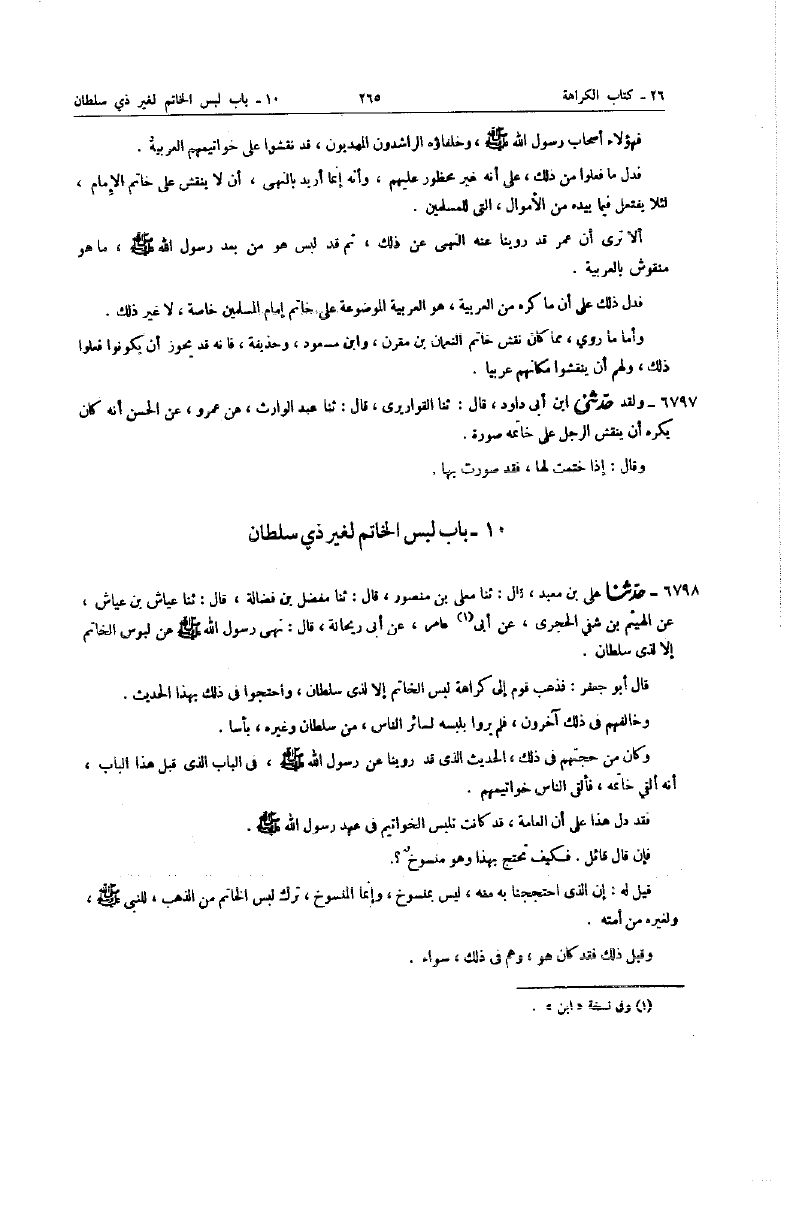 ٢٦ - كتاب الكراهة ٢٦٥ ١٠ - باب لبس الخاتم لغير ذي سلطان
فهؤلاء أصحاب رسول الله ﷺ ، وخلفاؤه الراشدون المهديون ، قد نقشوا على خواتيمهم العربية .
فدل ما فعلوا من ذلك ، على أنه غير محظور عليهم ، وأنه إنما أريد بالنهى ، أن لا ينقش على خاتم الإمام ،
لئلا يفتعل فيما بيده من الأموال ، التى للمسلمين .
ألا ترى أن عمر قد روينا عنه النهى عن ذلك ، ثم قد لبس هو من بعد رسول الله ﷺ ، ما هو
منقوش بالعربية .
فدل ذلك على أن ما كره من العربية ، هو العربية الموضوعة على خاتم إمام المسلمين خاصة ، لا غير ذلك .
وأما ما روي ، مما كان نقش خاتم النعمان بن مقرن ، وابن مسعود ، وحذيفة ، فانه قد يجوز أن يكونوا فعلوا
ذلك ، ولهم أن ينقشوا مكانهم عربيا .
٦٧٩٧ - ولقد حدثني ابن أبى داود ، قال : ثنا القواريرى ، قال : ثنا عبد الوارث ، عن عمرو ، عن الحسن أنه كان
يكره أن ينقش الرجل على خاتمه صورة .
وقال : إذا ختمت لها ، فقد صورت بها .
١٠ - باب لبس الخاتم لغير ذي سلطان
٦٧٩٨ - حدثنا على بن معبد ، قال : ثنا معلى بن منصور ، قال : ثنا مفضل بن فضالة ، قال : ثنا عياش بن عياش ،
عن الهيثم بن شفي الحجرى ، عن أبى (١) عامر ، عن أبى ريحانة ، قال : نهى رسول الله ﷺ عن لبوس الخاتم
إلا لذى سلطان .
قال أبو جعفر : فذهب قوم إلى كراهة لبس الخاتم إلا لذى سلطان ، واحتجوا فى ذلك بهذا الحديث .
وخالفهم فى ذلك آخرون ، فلم يروا بلبسه لسائر الناس ، من سلطان وغيره ، بأسا .
وكان من حجتهم فى ذلك ، الحديث الذى قد روينا عن رسول الله ﷺ ، فى الباب الذى قبل هذا الباب ،
أنه ألقى خاتمه ، فألقى الناس خواتيمهم .
فقد دل هذا على أن العامة ، قد كانت تلبس الخواتيم فى عهد رسول الله ﷺ .
فإن قال قائل . فكيف تحتج بهذا وهو منسوخ ؟.
قيل له : إن الذى احتججنا به منه ، ليس بمنسوخ ، وإنما المنسوخ ، ترك لبس الخاتم من الذهب ، للنبى ﷺ ،
ولغيره من أمته .
وقبل ذلك فقد كان هو ، وهم فى ذلك ، سواء .
(١) وفى نسخة « ابن » .